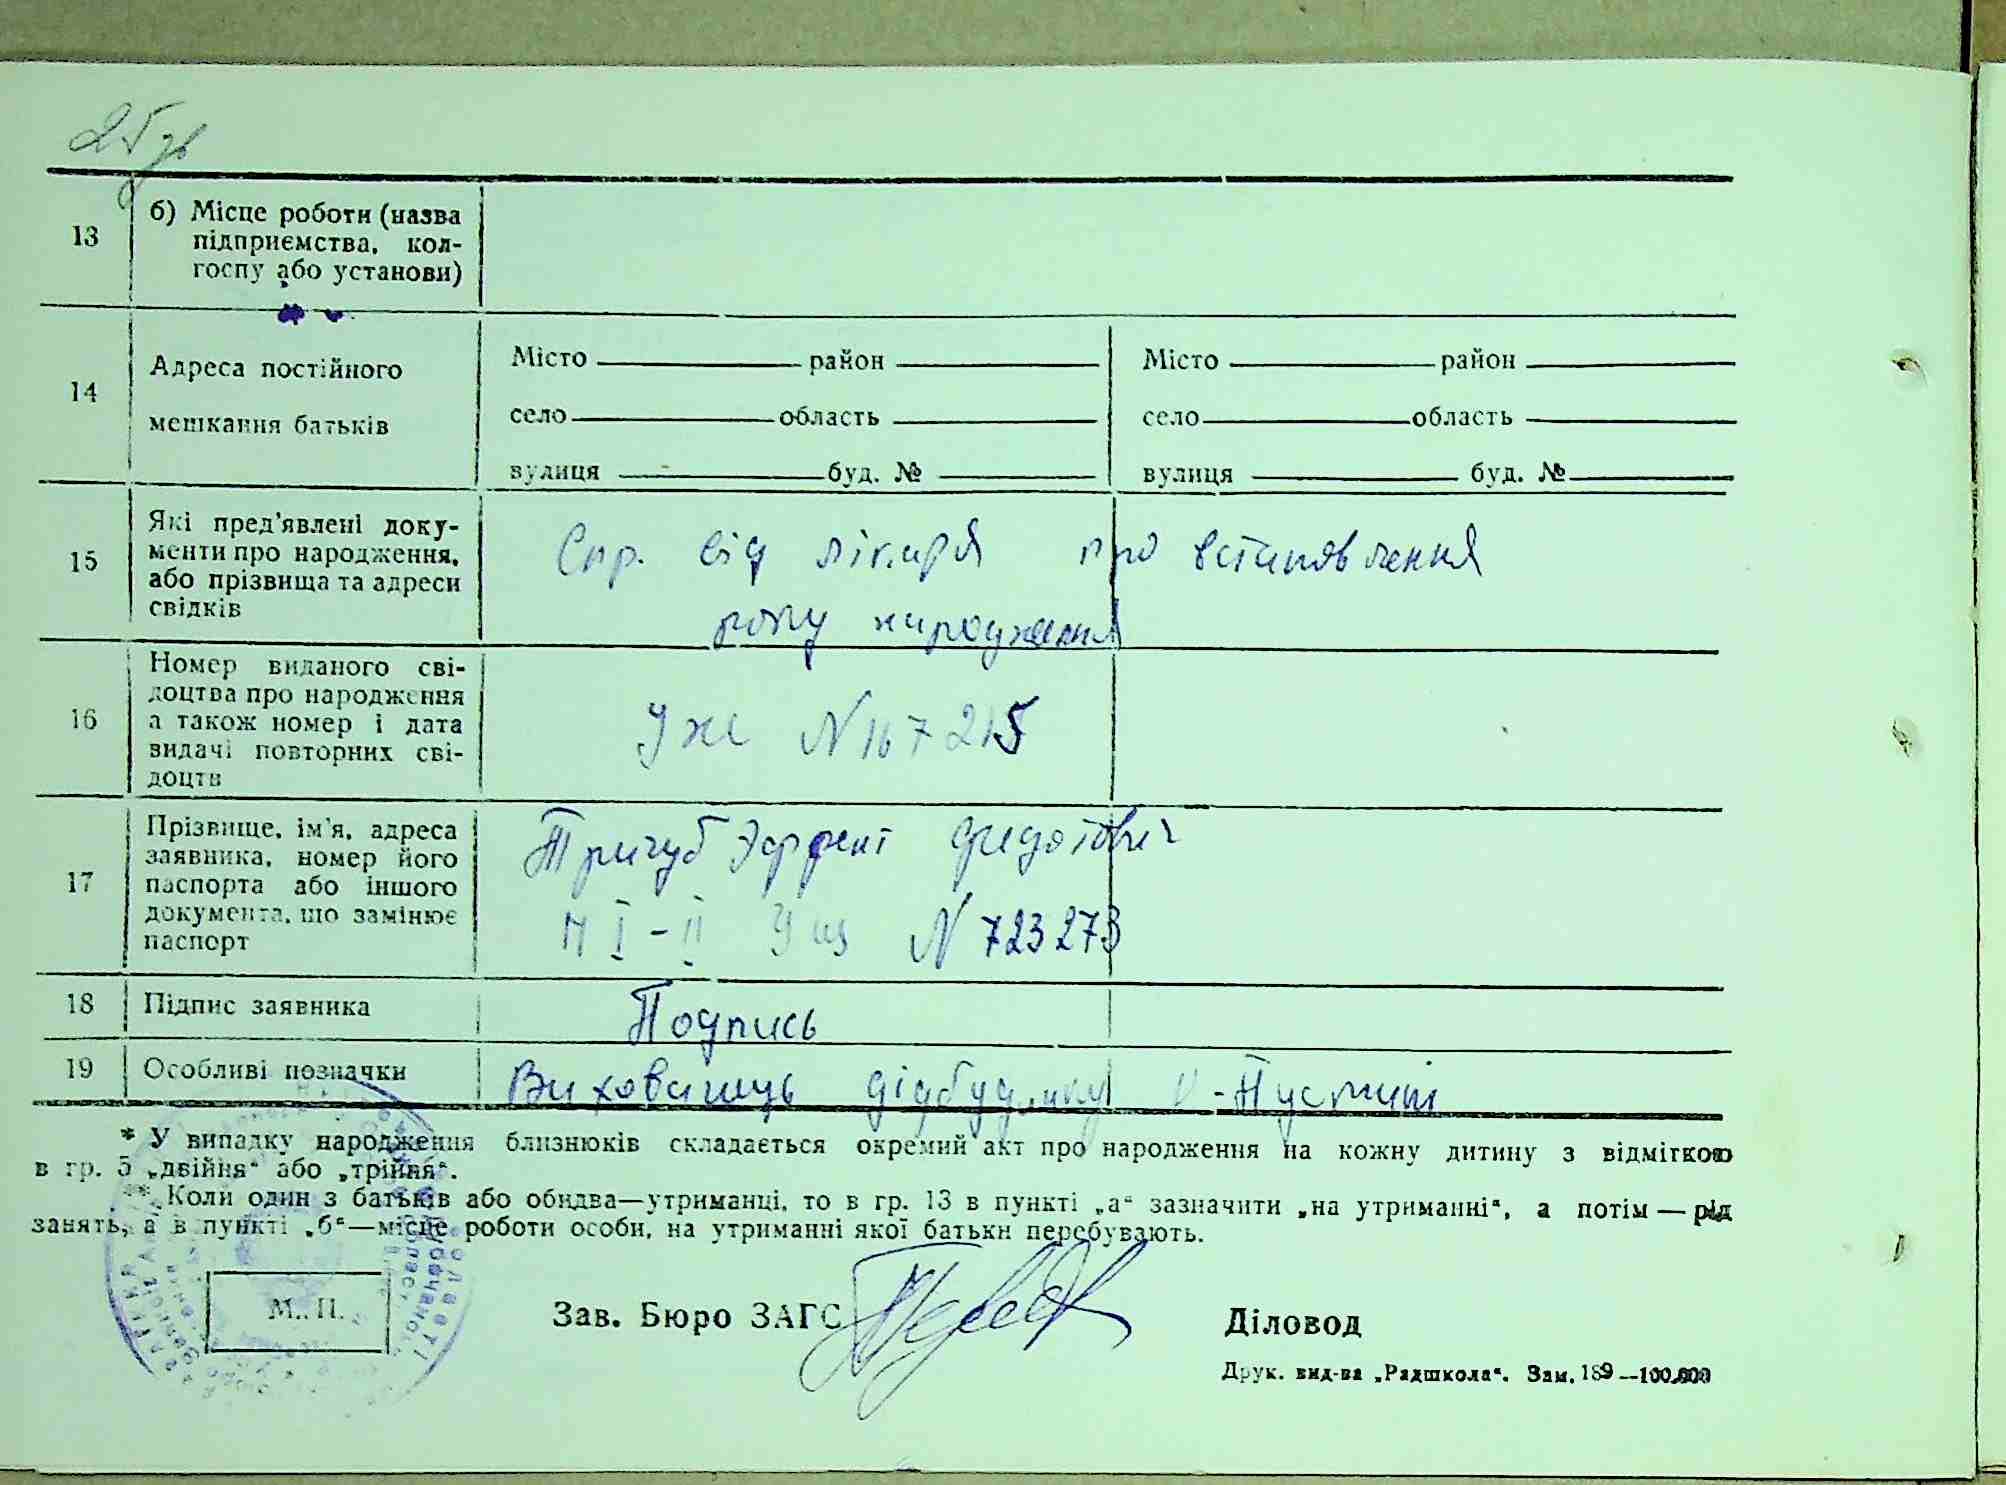 25 зв
13
б) Місце роботи (назва
підприємства, кол-
госпу або установи)
14
Адреса постійного
мешкання батьків
Місто район
село область
вулиця буд. №
Місто район
село область
вулиця буд. №
15
Які пред'явлені доку-
менти про народження,
або прізвища та адреси
свідків
Спр. від лікаря про встановлення
року народження
16
Номер виданого сві-
доцтва про народження
а також номер і дата
видачі повторних сві-
доцтв
УЖ N 167215
17
Прізвище, ім'я, адреса
заявника, номер його
паспорта або іншого
документа, що замінює
паспорт
Тригуб Федотович
I-II N 723273
18
Підпис заявника
Подпись
19
Особливі позначки
Вихованць дідбудинку
* У випадку народження близнюків складається окремий акт про народження на кожну дитину з відміткою
в гр. 5 „двійня“ або „трійня“.
** Коли один з батьків або обидва—утриманці, то в гр. 13 в пункті „а“ зазначити „на утриманні“, а потім — рід
занять, а в пункті „б“—місце роботи особи, на утриманні якої батьки перебувають.
М. П.
Зав. Бюро ЗАГС
Діловод
Друк. вид-ва „Радшкола“. Зам. 189 —100.000